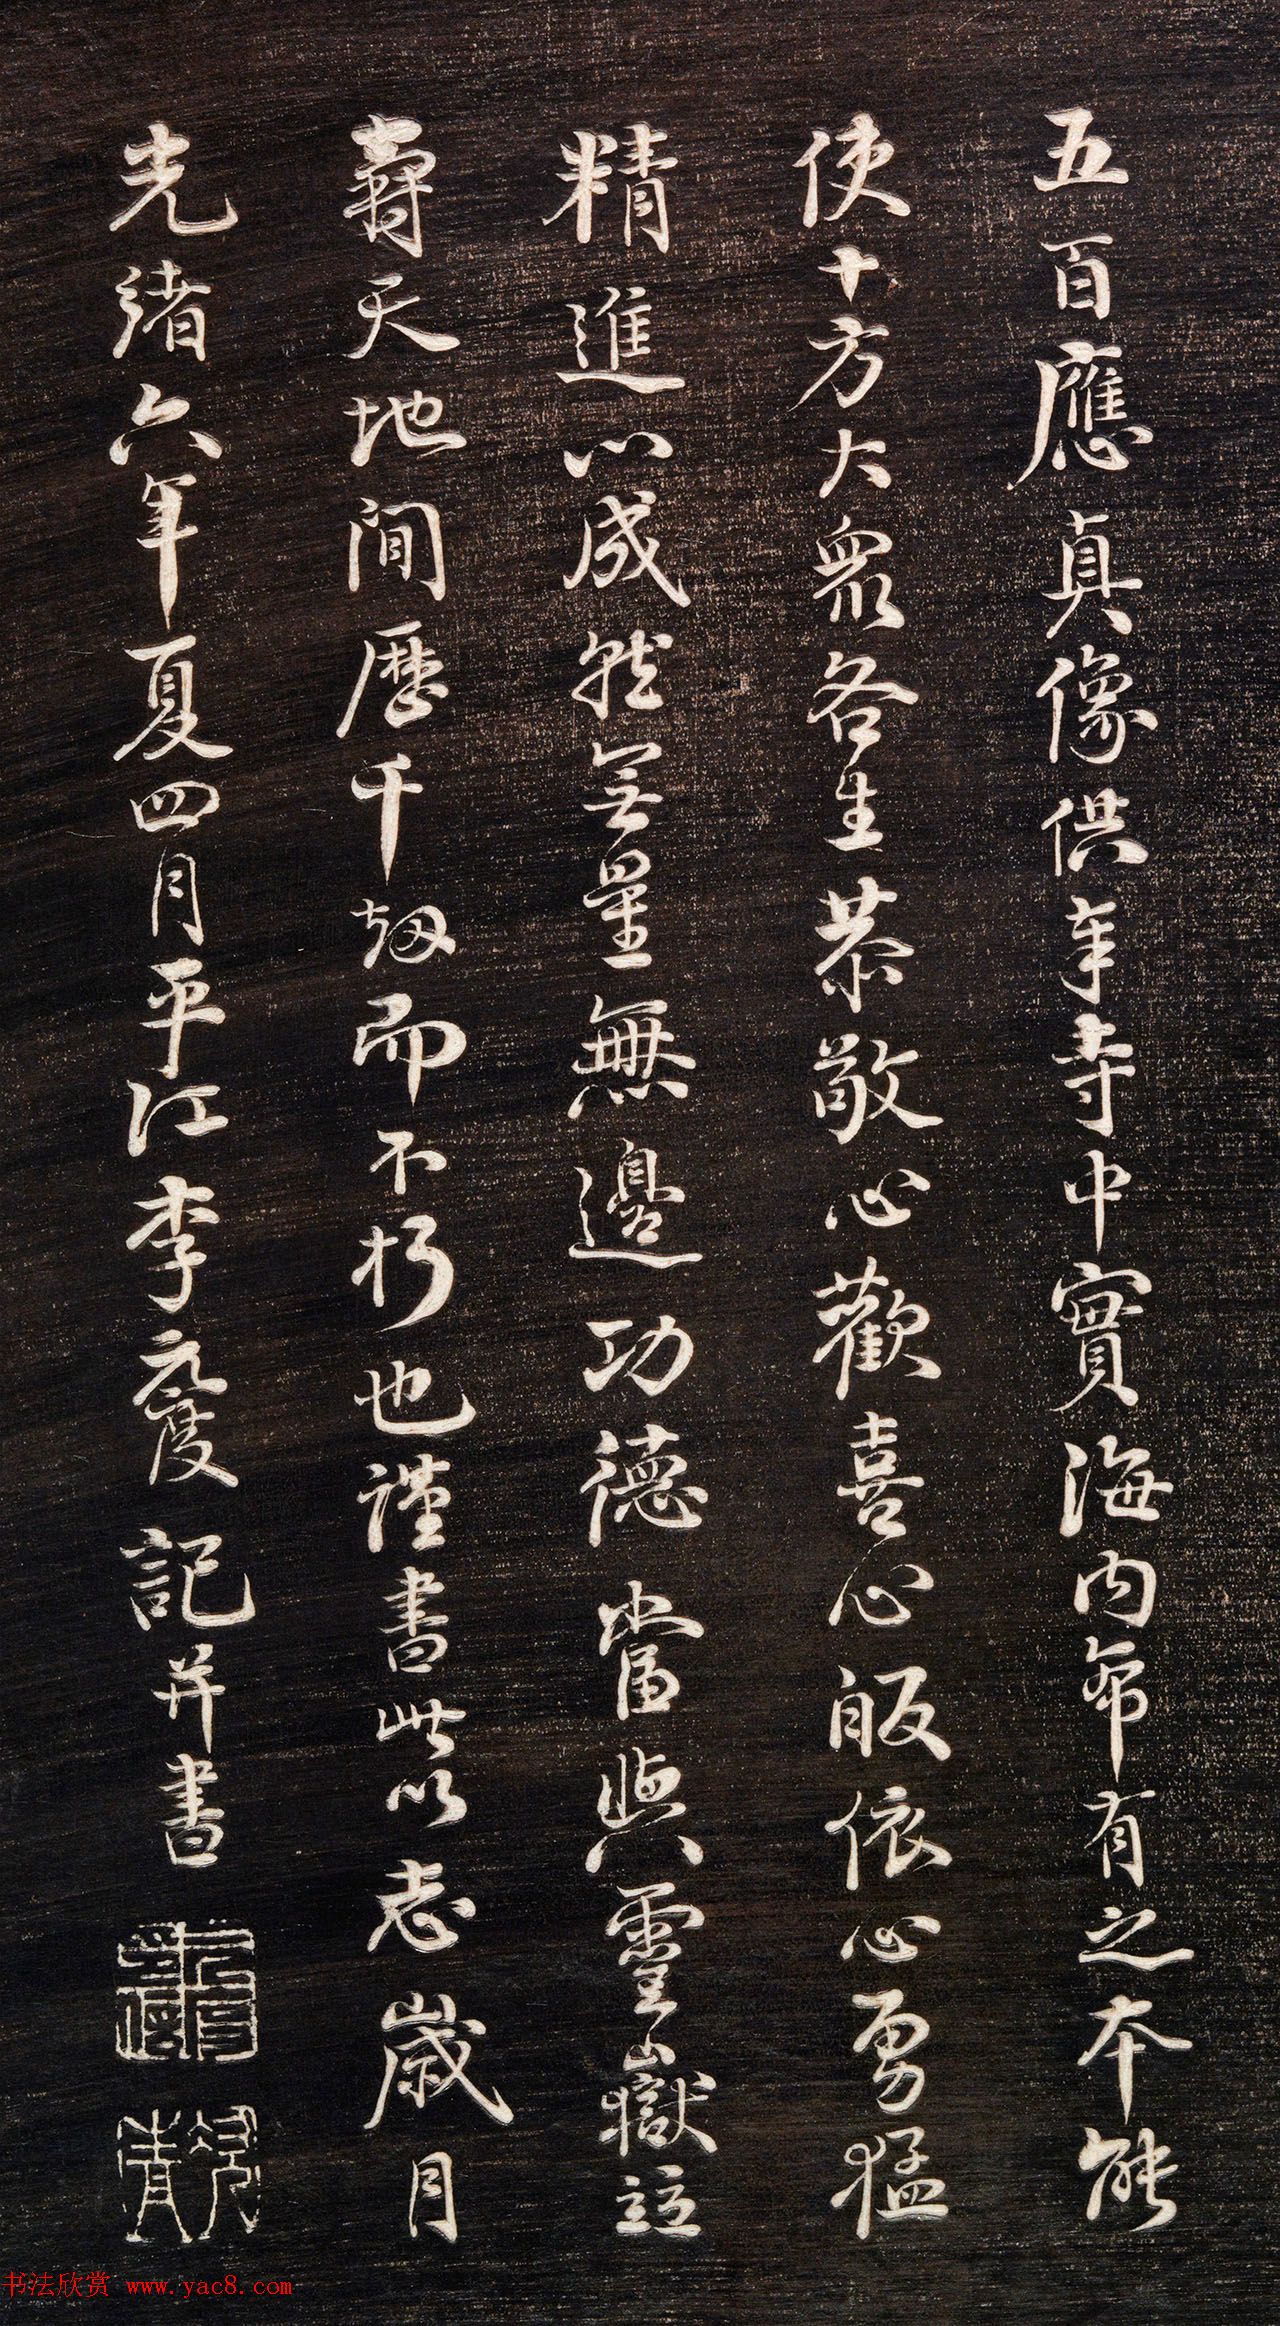 五百應真像供奉寺中實海内希有之本能
使十方大眾各生恭敬心歡喜心皈依心勇猛
精進以成就无量無邊功德當與靈嶽竝
壽天地間歷千劫而不朽也謹書此以志歲月
光緒六年夏四月平江李元度記并書
书法欣赏 www.yac8.com